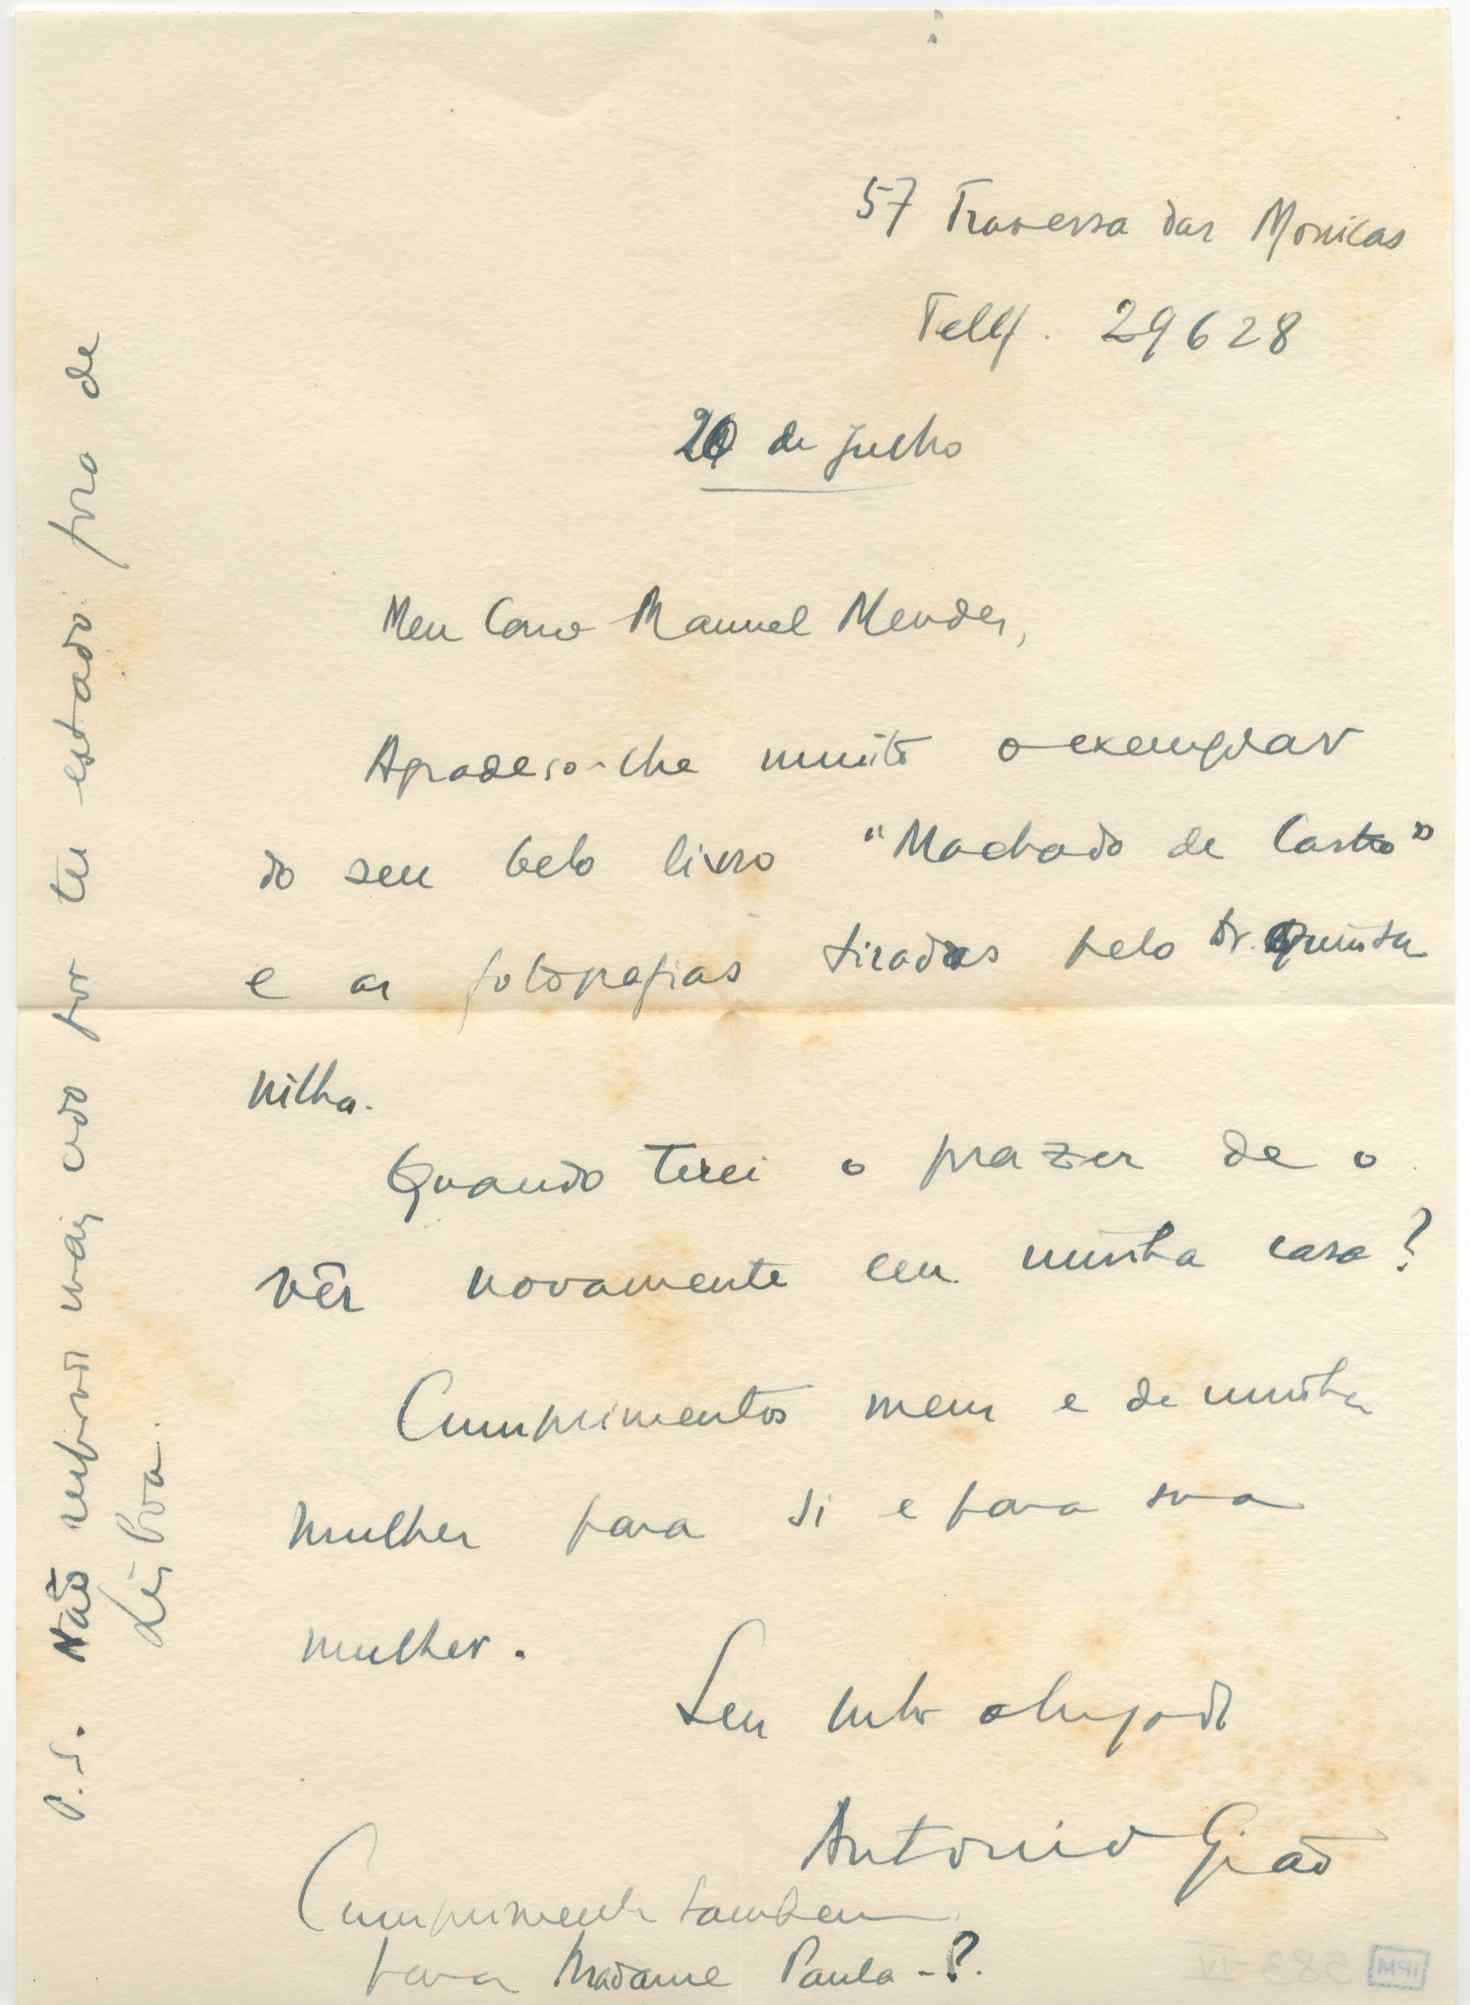 57 Travessa das Monicas
Telf. 29628
20 de Julho
Meu Caro Manuel Mendes,
Agradeço-lhe muito o exemplar
do seu belo livro "Machado de Castro"
e as fotografias tiradas pelo Dr. Quinta
nilha.
Quando terei o prazer de o
vêr novamente em minha casa?
Cumprimentos meus e de minha
mulher para si e para sua
mulher.
Seu mto obrigado
Antonio Gião
Cumprimentos tambem
para Madame Paula-?
P.S. Não respondi mais cedo por ter estado fora de
Lisboa.